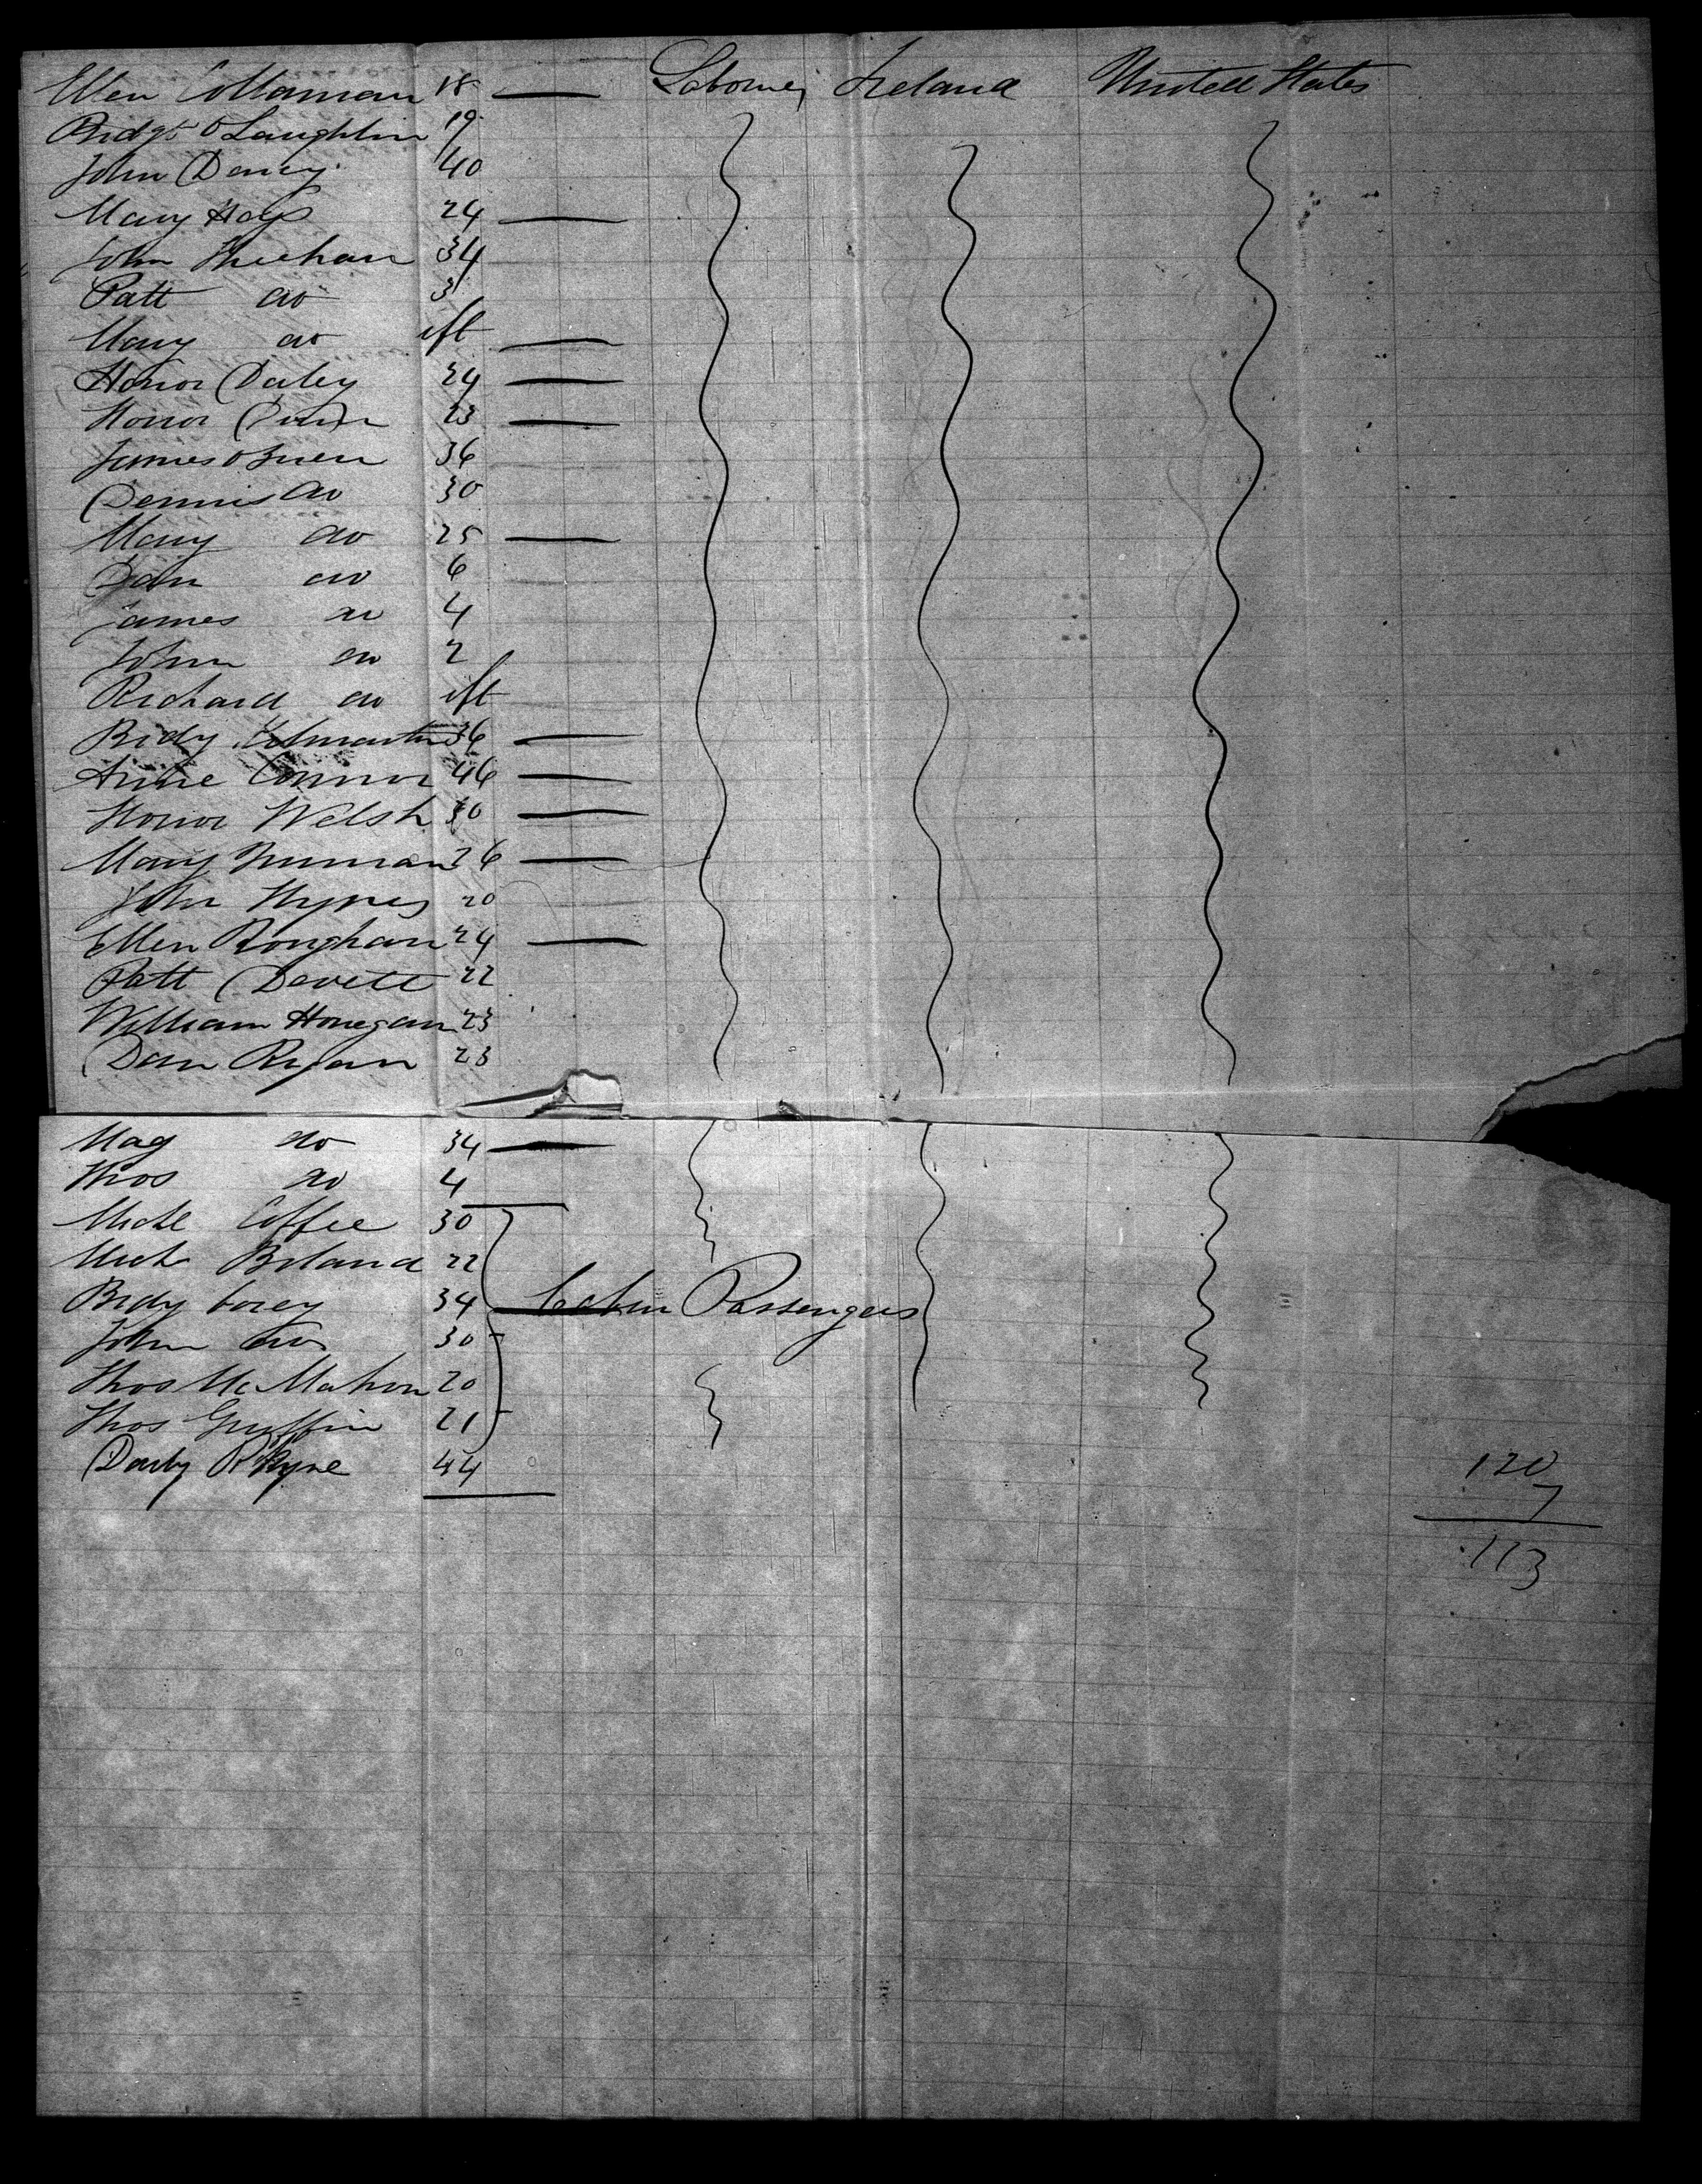 Ellen Collaman 18 — Laborer Ireland United States
Bridgt OLaughlin 19
John Darcy 40
Mary Hays 24 —
John Sheehan 34
Patt do 3
Mary do ift —
Honor Daley 24 —
Honor 23 —
James OBrien 36
Dennis do 30
Mary do 25 —
Dan do 6
James do 4
John do 2
Richard do ift
Bidy Kilmartin 36 —
Anne Connor 46 —
Honor Welsh 30 —
Mary 26 —
John Hynes 20
Ellen Roughan 24 —
Patt Devett 22
William Honegan 23
Dan Ryan 23
Mag do 34 —
Thos do 4
Michl Coffee 30
Mich Boland 22
Bidy Corey 34 — Cabin Passengers
John do 30
Thos McMahon 20
Thos Griffin 21
Darby 44
120
7
113